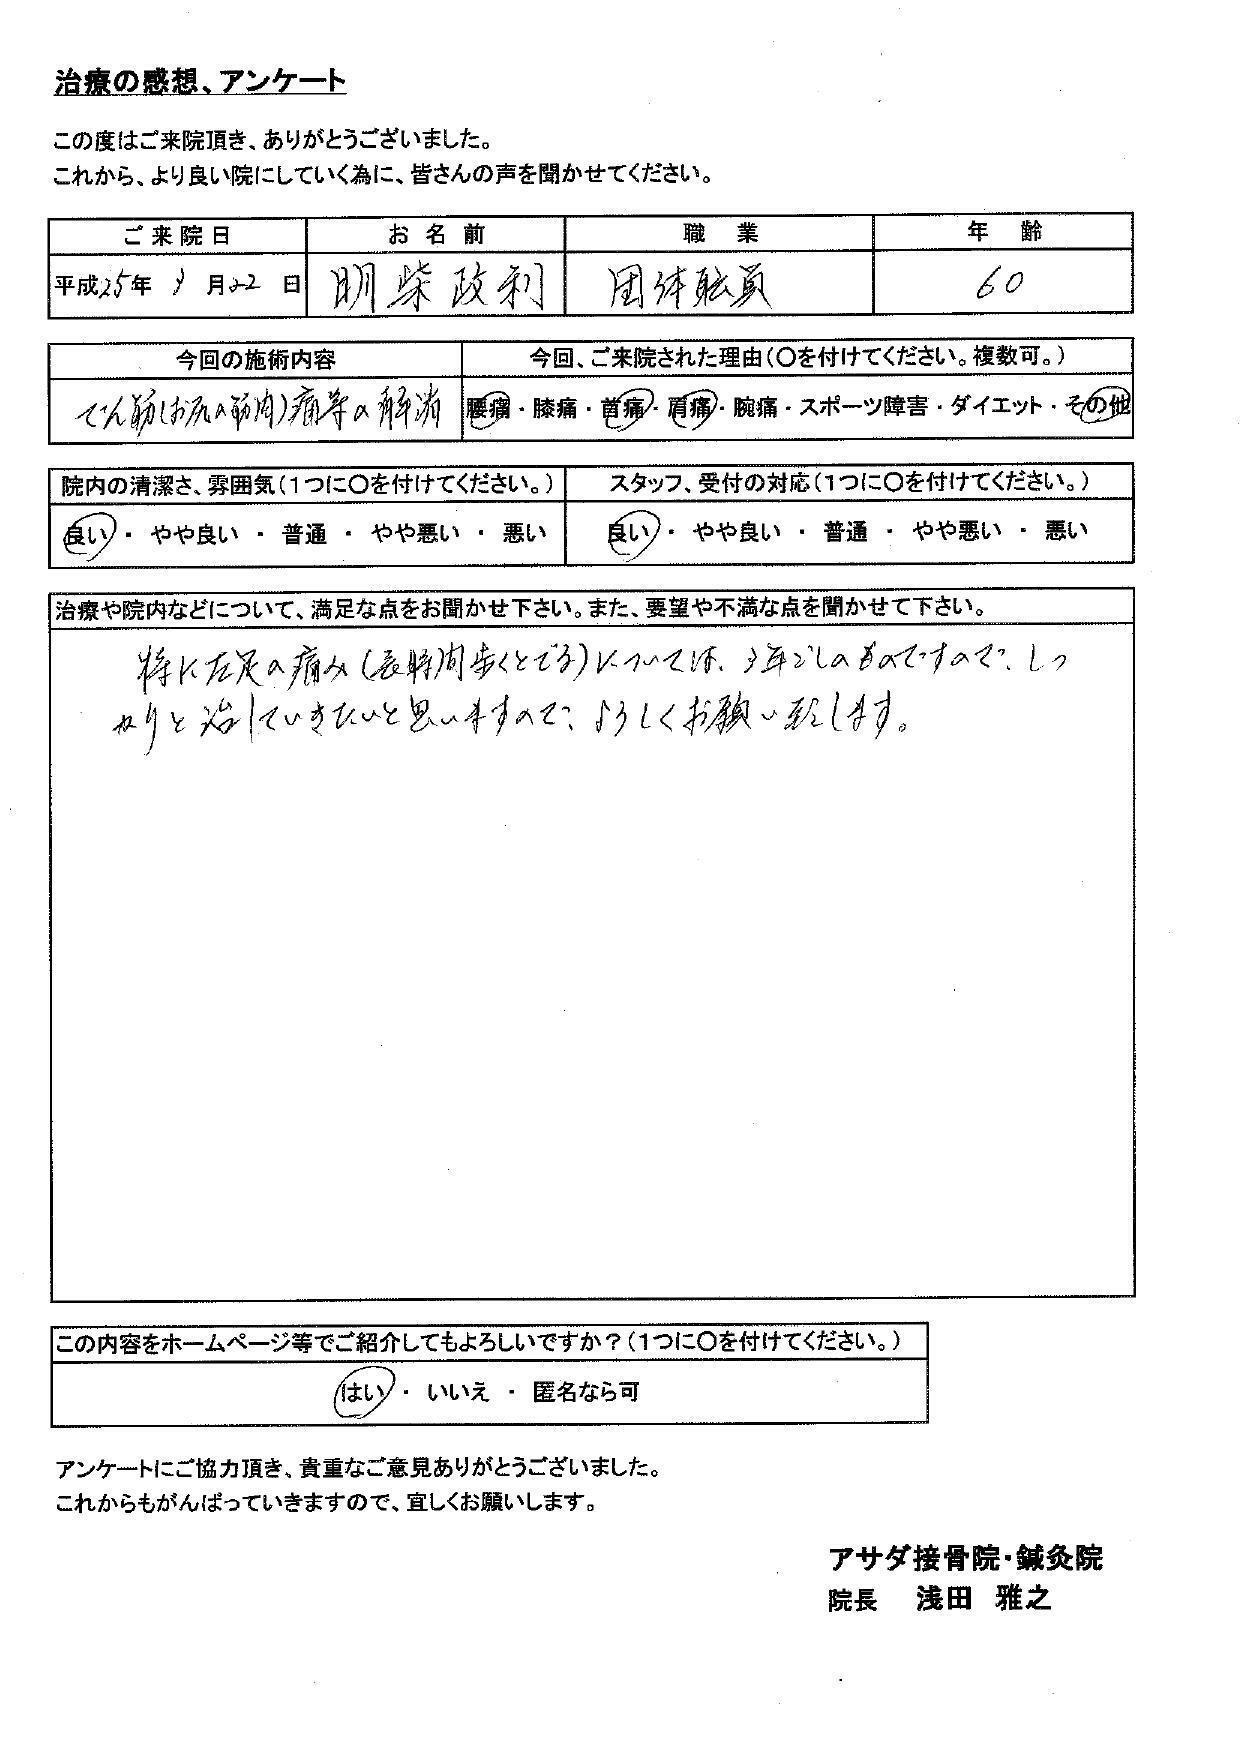 治療の感想、アンケート
この度はご来院頂き、ありがとうございました。
これから、より良い院にしていく為に、皆さんの声を聞かせてください。
ご来院日 お名前 職業 年齢
平成25年 月22日 明柴政利 団体職員 60
今回の施術内容 今回、ご来院された理由(〇を付けてください。複数可。)
でん筋(お尻の筋肉)痛等の解消 腰痛・膝痛・首痛・肩痛・腕痛・スポーツ障害・ダイエット・その他
院内の清潔さ、雰囲気(1つに〇を付けてください。) スタッフ、受付の対応(1つに〇を付けてください。)
良い・やや良い・普通・やや悪い・悪い 良い・やや良い・普通・やや悪い・悪い
治療や院内などについて、満足な点をお聞かせ下さい。また、要望や不満な点を聞かせて下さい。
特に左足の痛み(長時間歩くとでる)については、3年ごしのものですので、しっ
かりと治していきたいと思いますので、よろしくお願い致します。
この内容をホームページ等でご紹介してもよろしいですか?(1つに〇を付けてください。)
はい・いいえ・匿名なら可
アンケートにご協力頂き、貴重なご意見ありがとうございました。
これからもがんばっていきますので、宜しくお願いします。
アサダ接骨院・鍼灸院
院長 浅田 雅之